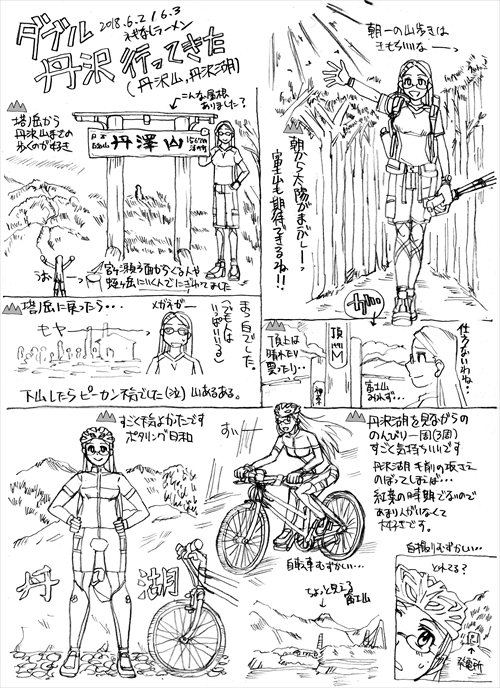 ダブル
丹沢 行ってきた
2018.6.2/6.3
わたなしラーメン
(丹沢山、丹沢湖)
朝一の山歩きは
きもちいいなーっ
こんな屋根
ありました?
塔ノ岳から
丹沢山までの
歩くのが好き
丹澤山
朝から太陽がまぶしーっ
富士山も期待できるね!!
宮ヶ瀬方面からくる人や
蛭ヶ岳にいく人でにぎわってました
塔ノ岳に戻ったら・・・
モヤー
メガネがー
まっ白でした。
(でも人は
いっぱいいる)
下山したらピーカン天気でした(泣)山あるある。
頂上は
晴れたり
曇ったり…
頂
1491
M
富士山
みれず…
仕方ないわね。
すごく天気よかたです
ポタリング日和
丹
湖
自転車むずかしい…
丹沢湖を見ながらの
のんびり一周(3周)
すごく気持ちいいです
丹沢湖は手前の坂さえ
のぼってしまえば…
紅葉の時期でないので
あまり人がいなくて
大好きです。
ちょっと見える
富士山
自撮りむずかしい…
とれてる?
発電所